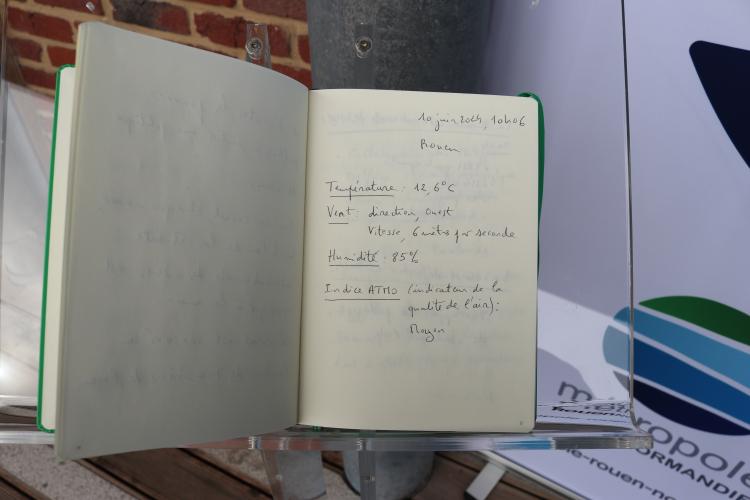 10 juin 2024, 10h06
Rouen
Température : 12,6°C
Vent : direction, ouest
Vitesse, 6 mètres par seconde
Humidité : 85%
Indice ATMO (indicateur de la
qualité de l'air) :
Moyen
métropole
NORMANDIE